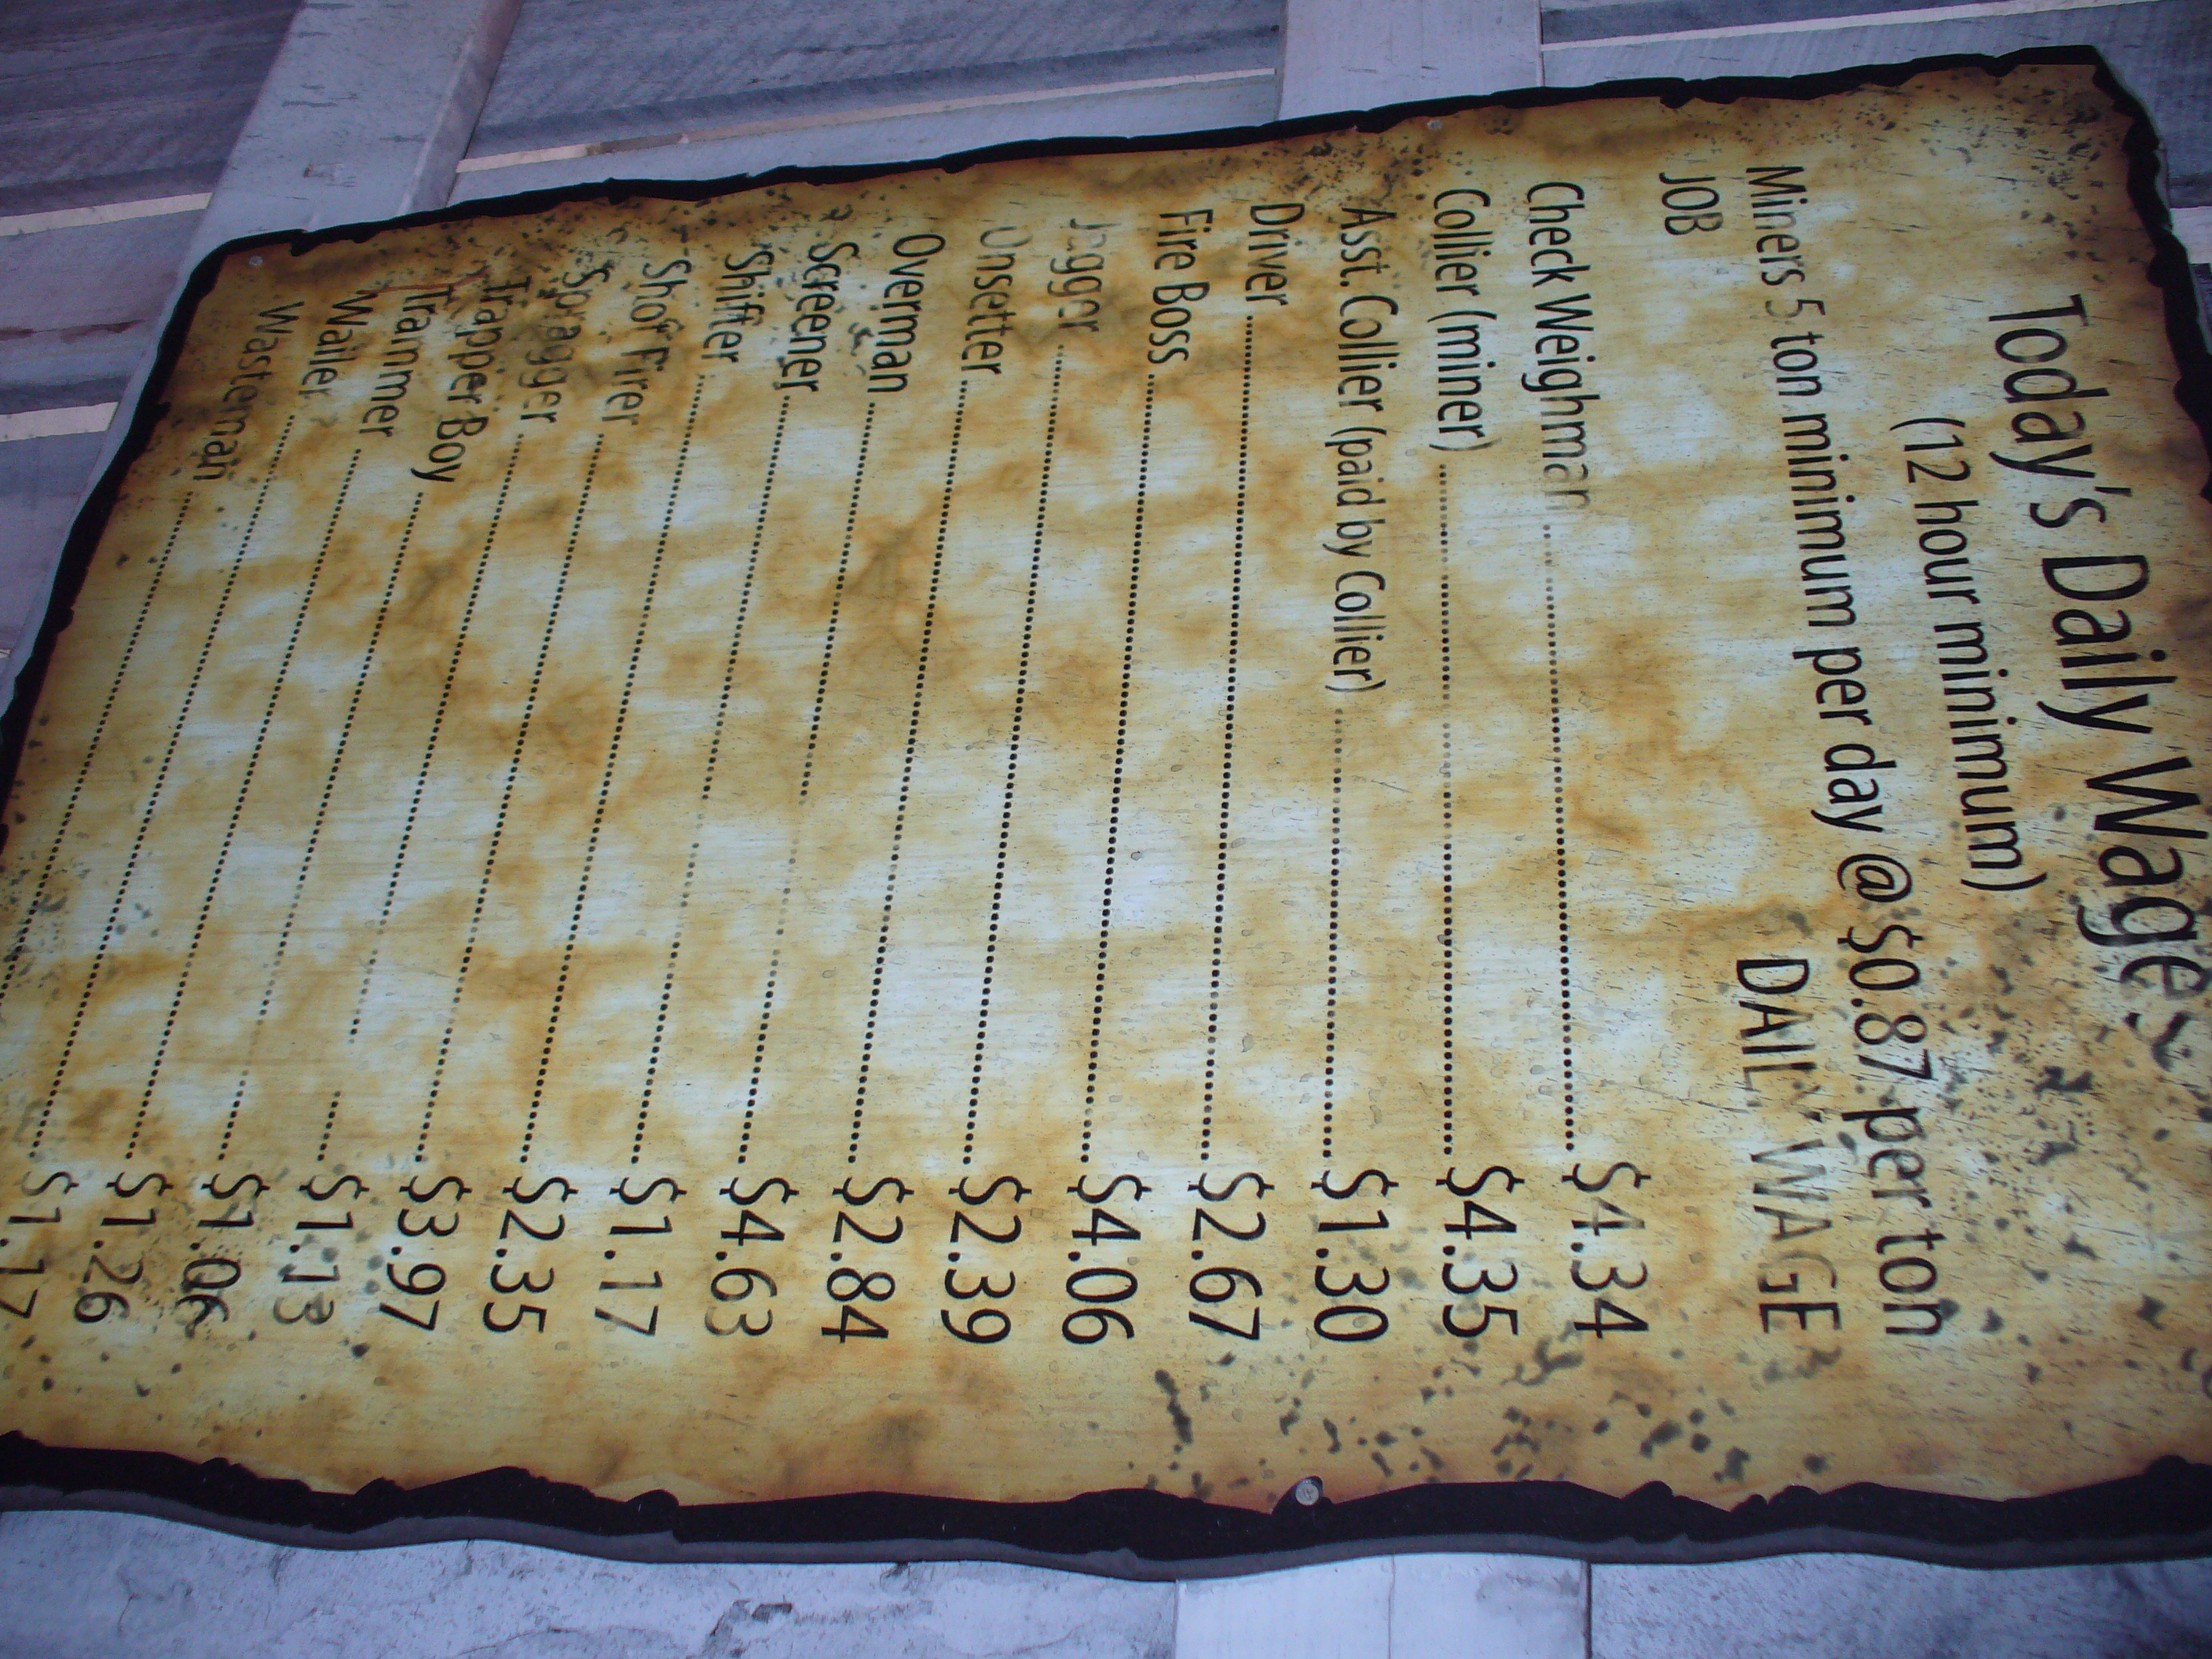 Today's Daily Wages
(12 hour minimum)
Miners 5 ton minimum per day @ $0.87 per ton
JOB DAILY WAGE
Check Weighman $4.34
Collier (miner) $4.35
Asst. Collier (paid by Collier) $1.30
Driver $2.67
Fire Boss $4.06
Jagger $2.39
Onsetter $2.84
Overman $4.63
Screener $1.17
Shifter $2.35
Shot Firer $3.97
Spragger $1.13
Trapper Boy $1.06
Trammer $1.26
Wailer $1.17
Wasteman